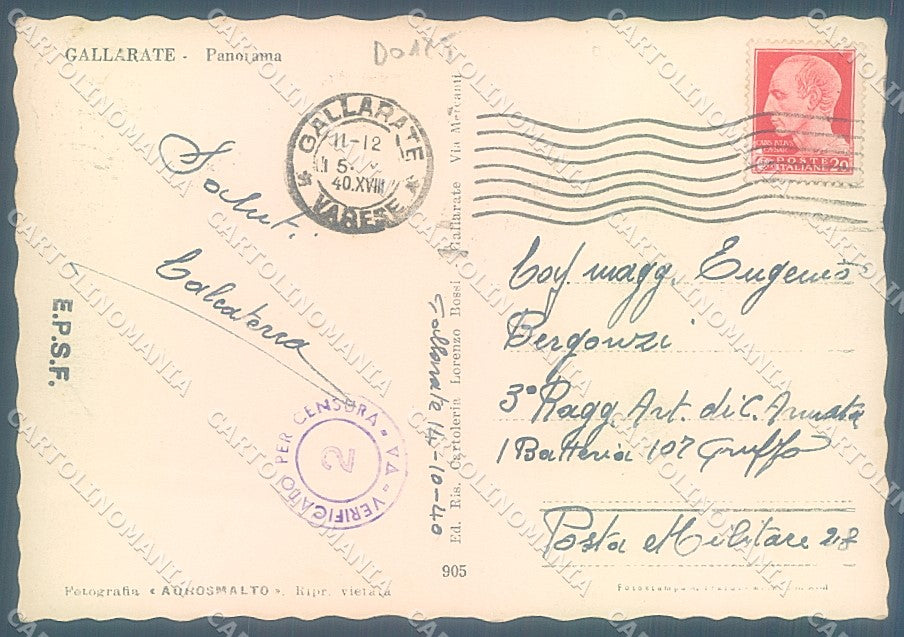 GALLARATE - Panorama
GALLARATE
11-12
15.
40.XVIII
VARESE
Saluti
Calcaterra
E.P.S.F.
VERIFICATO PER CENSURA - VA -
2
Gallarate 14-10-40
Ed. Ris. Cartoleria Lorenzo Bossi Gallarate Via Mercanti
905
POSTE
ITALIANE 20
Cap. magg. Eugenio
Bergonzi
3° Ragg. Art. di C. Armata
1 Batteria 107 Gruppo
Posta Militare 28
Fotografia «AQROSMALTO». Ripr. vietata
CARTOLINOMANIA